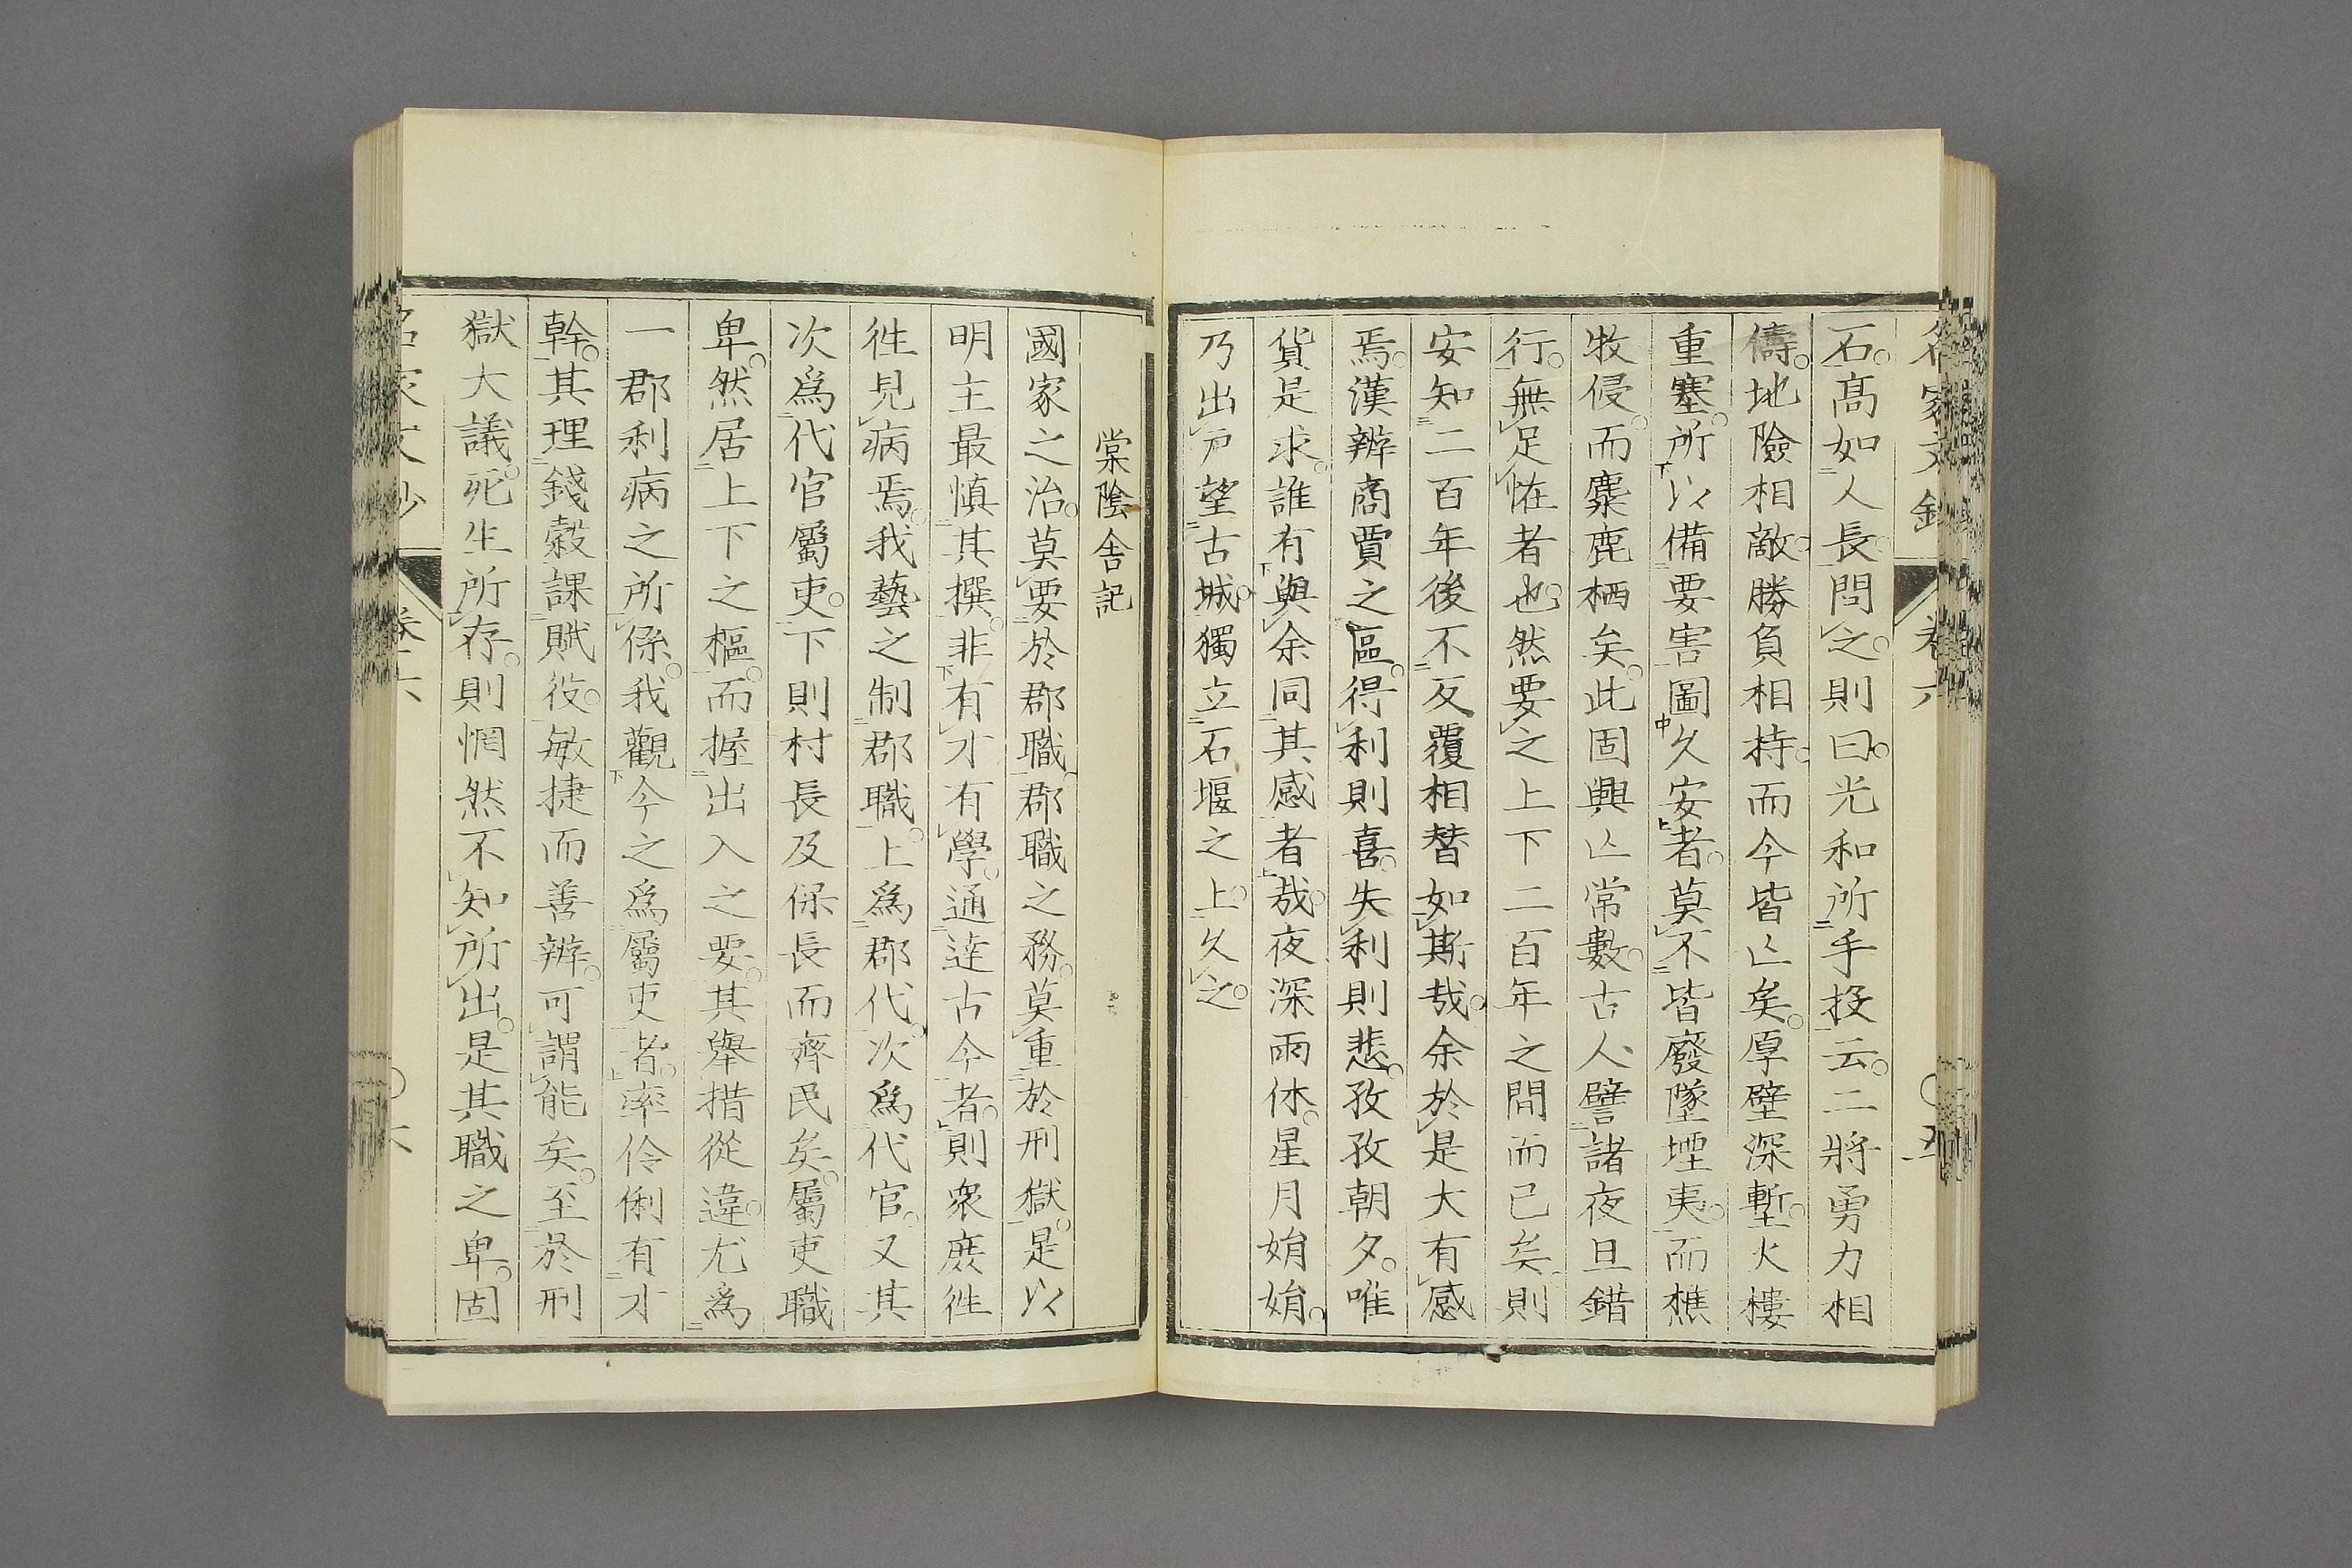 名家文鈔 卷六 ○五
石。高如人長。問之。則曰。光和所手投云。二將勇力相
儔。地險相敵。勝負相持。而今皆亾矣。厚壁深塹。火樓
重塞。所以備要害圖久安者。莫不皆廢墜堙夷。而樵
牧侵。而麋鹿栖矣。此固興亾常數。古人譬諸夜旦錯
行。無足恠者也。然要之上下二百年之間而已矣則
安知二百年後不反覆相替如斯哉。余於是大有感
焉。漢辨商賈之區。得利則喜。失利則悲。孜孜朝夕。唯
貨是求。誰有與余同其感者哉。夜深雨休。星月娋娋。
乃出戸望古城。獨立石堰之上。久之。
棠陰舍記
國家之治。莫要於郡職。郡職之務。莫重於刑獄。是以
明主最愼其撰。非有才有學。通達古今者。則衆庶徃
徃見病焉。我藝之制郡職。上爲郡代。次爲代官。又其
次爲代官屬吏。下則村長及保長而齊民矣。屬吏職
卑。然居上下之樞。而握出入之要。其舉措從違。尤爲
一郡利病之所係。我觀今之爲屬吏者。率伶俐有才
幹。其理錢穀課賦役。敏捷而善辨。可謂能矣。至於刑
獄大議。死生所存。則惘然不知所出。是其職之卑。固
名家文鈔 卷六 ○六